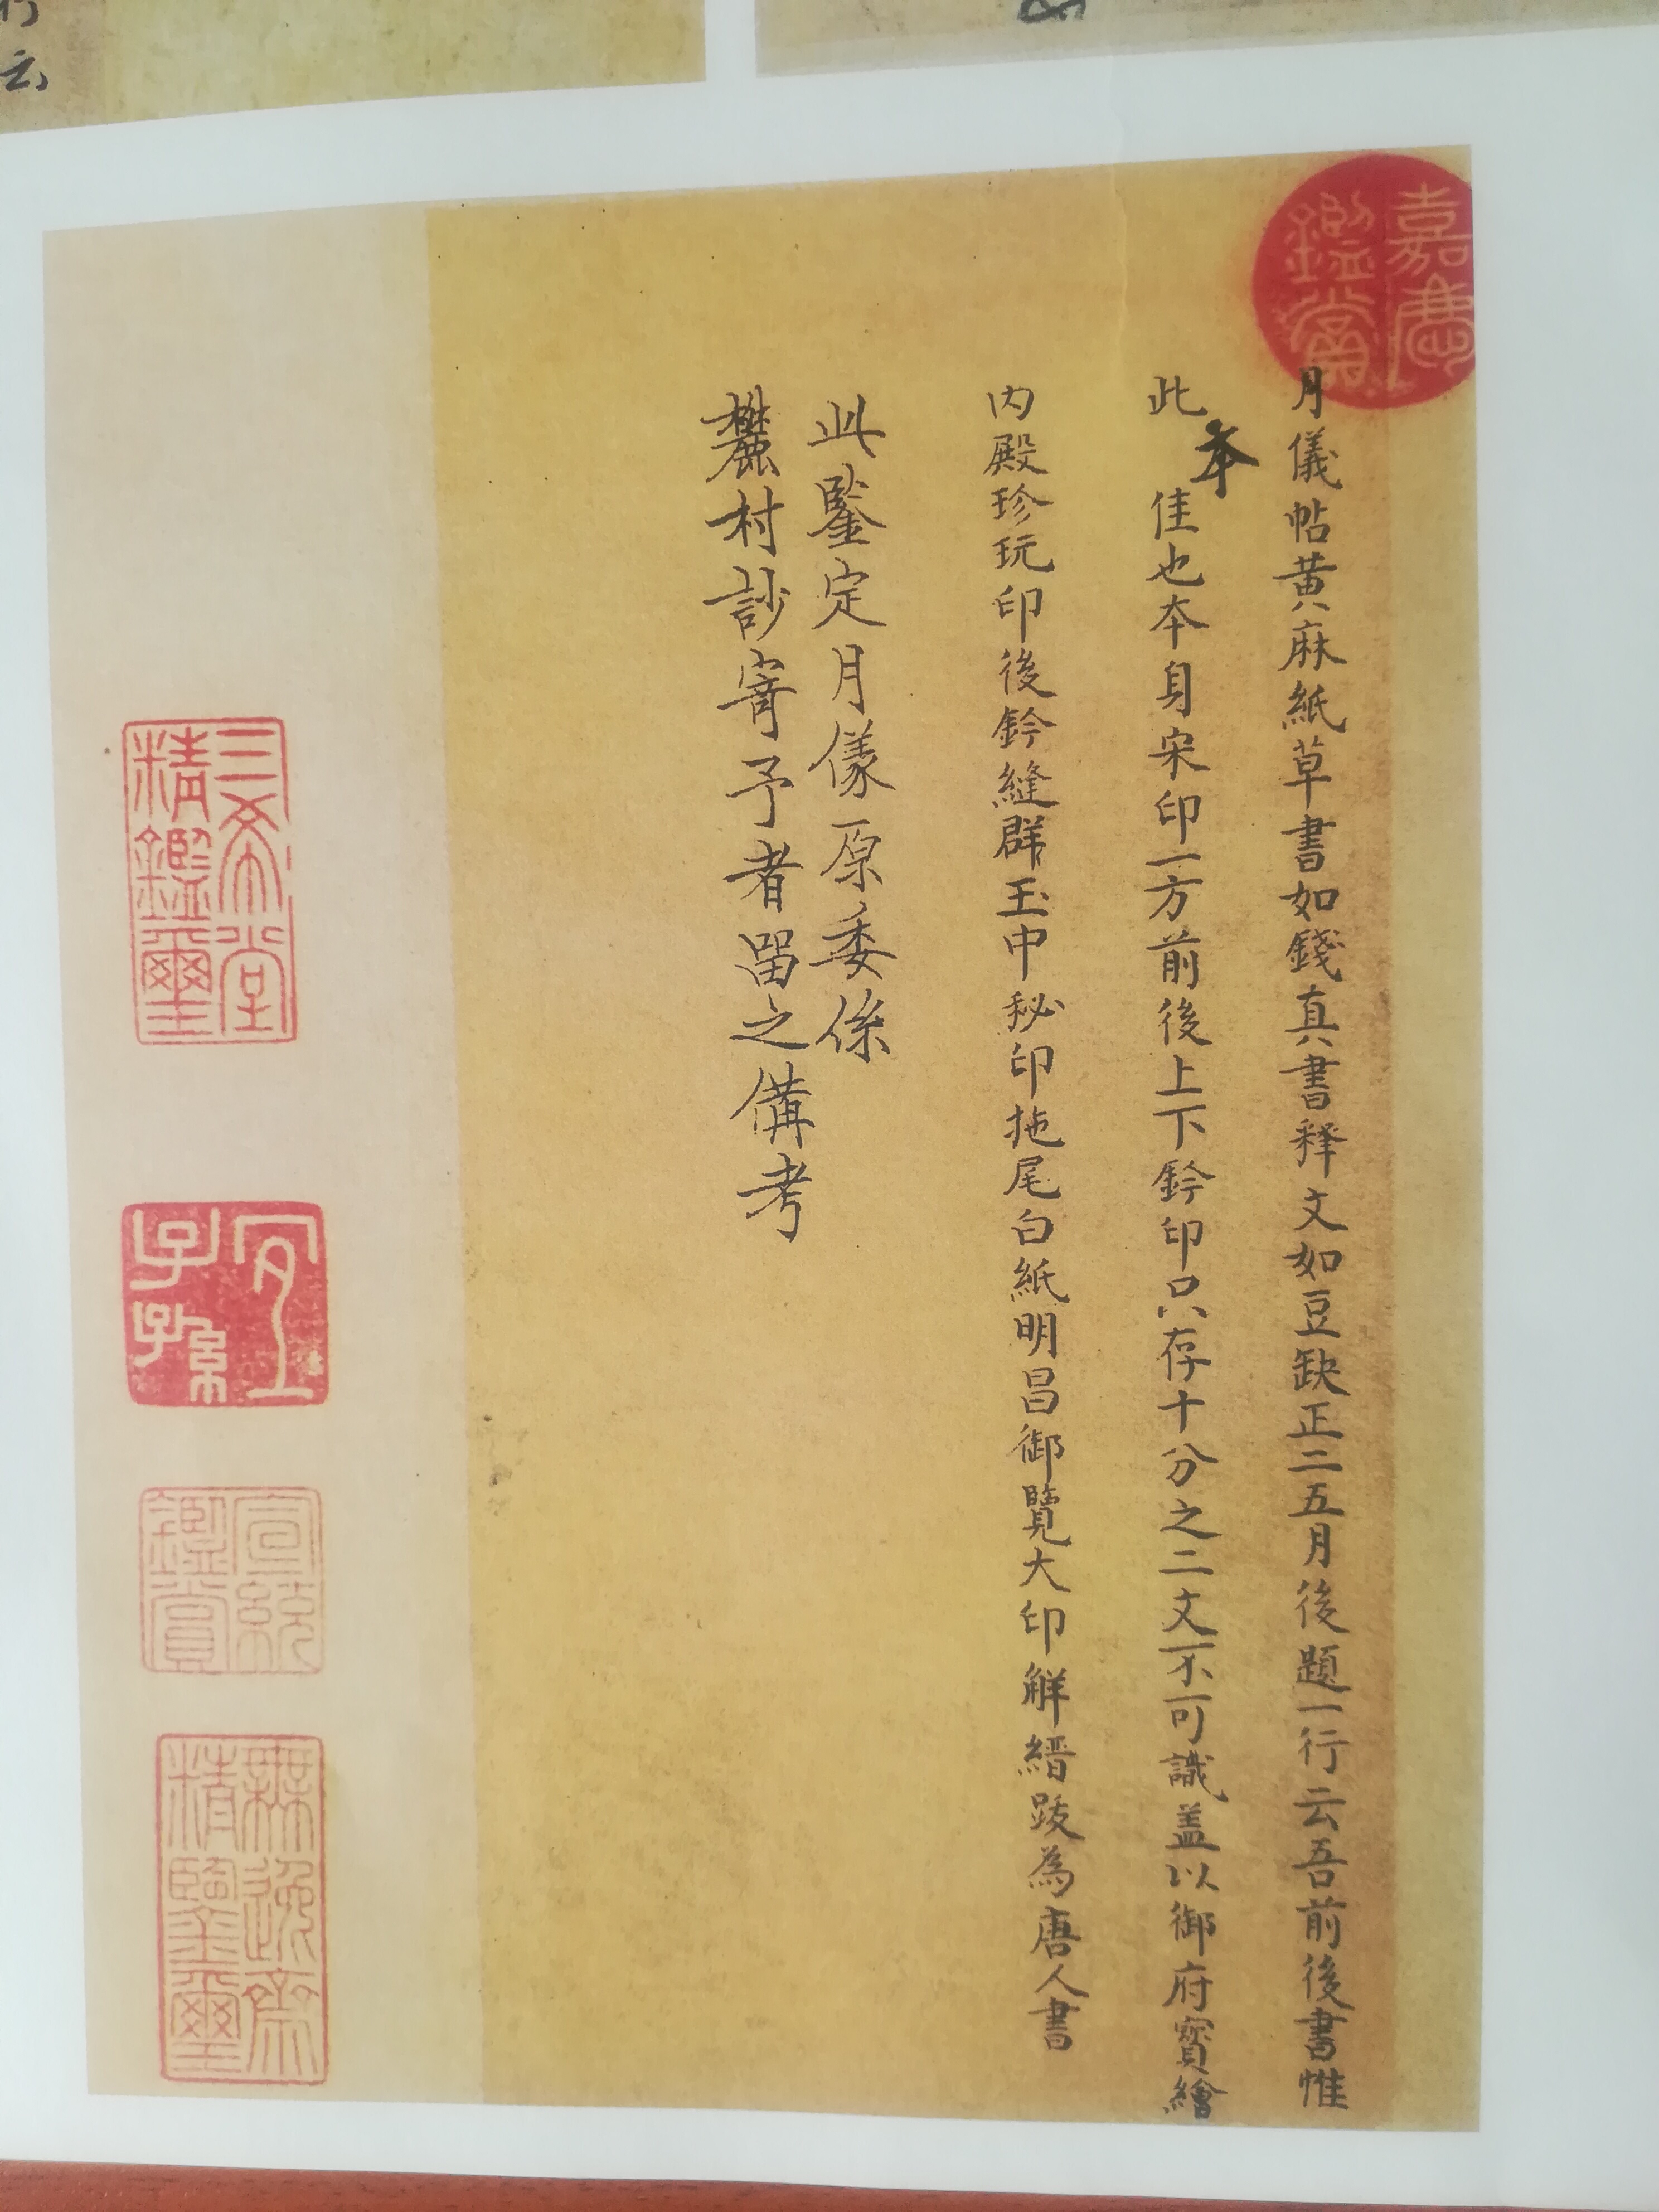 嘉慶
鑑賞
月儀帖黄麻紙草書如錢真書释文如豆缺正二五月後題一行云吾前後書惟
此本佳也本身宋印一方前後上下鈐印只存十分之二文不可識盖以御府寳繪
内殿珍玩印後鈐縫群玉中秘印拖尾白紙明昌御覽大印觧縉跋為唐人書
此鑒定月儀原委係
麓村訬寄予者畱之備考
三希堂
精鑑璽
宜
子孫
宣統
鑑賞
無逸齋
精鑒璽
行
云